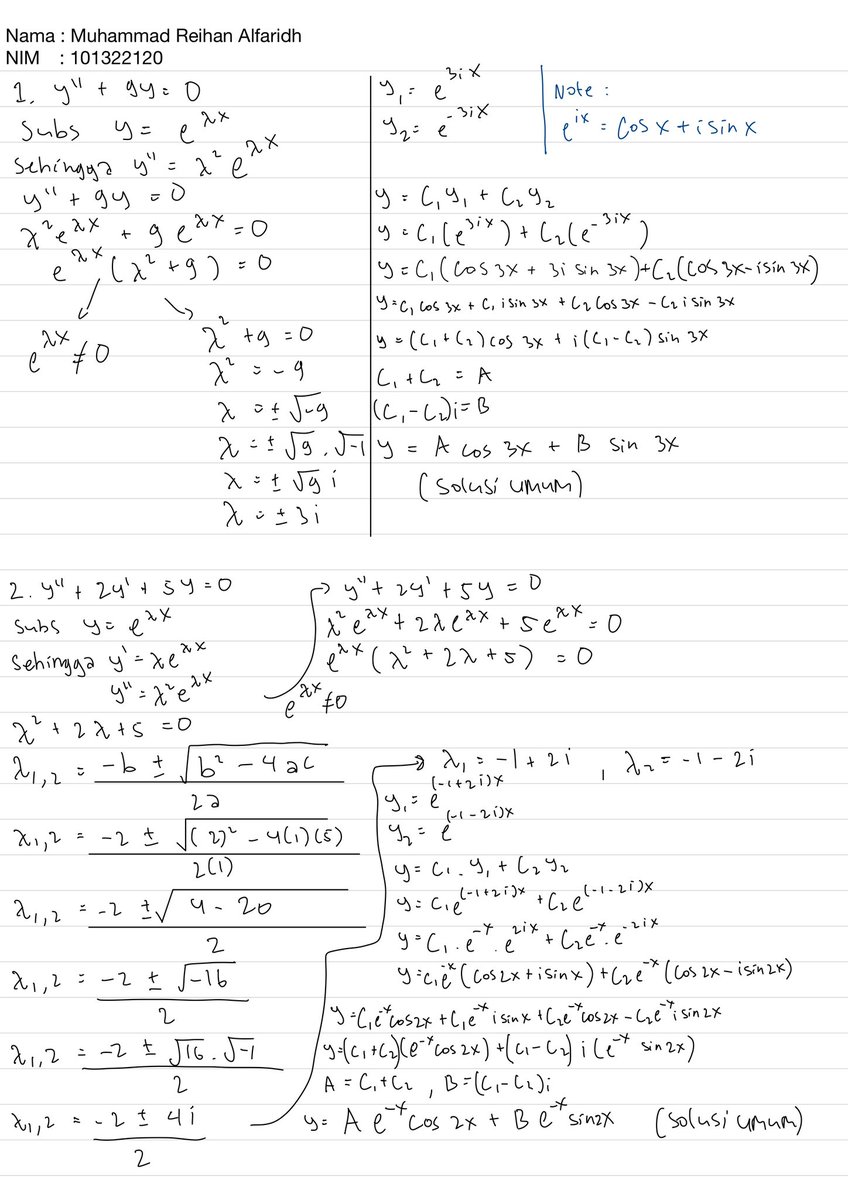 Nama : Muhammad Reihan Alfaridh
NIM : 101322120
1. y'' + 9y = 0
Subs y = e^{λx}
Sehingga y'' = λ² e^{λx}
y'' + 9y = 0
λ² e^{λx} + 9 e^{λx} = 0
e^{λx} (λ² + 9) = 0
e^{λx} ≠ 0
λ² + 9 = 0
λ² = -9
λ = ± √-9
λ = ± √9 . √-1
λ = ± √9 i
λ = ± 3i
y₁ = e^{3ix}
y₂ = e^{-3ix}
Note :
e^{ix} = cos x + i sin x
y = C₁ y₁ + C₂ y₂
y = C₁(e^{3ix}) + C₂(e^{-3ix})
y = C₁(cos 3x + 3i sin 3x) + C₂(cos 3x - i sin 3x)
y = C₁ cos 3x + C₁ i sin 3x + C₂ cos 3x - C₂ i sin 3x
y = (C₁ + C₂) cos 3x + i(C₁ - C₂) sin 3x
C₁ + C₂ = A
(C₁ - C₂)i = B
y = A cos 3x + B sin 3x
(solusi umum)
2. y'' + 2y' + 5y = 0
Subs y = e^{λx}
Sehingga y' = λe^{λx}
y'' = λ² e^{λx}
y'' + 2y' + 5y = 0
λ² e^{λx} + 2λe^{λx} + 5e^{λx} = 0
e^{λx} (λ² + 2λ + 5) = 0
e^{λx} ≠ 0
λ² + 2λ + 5 = 0
λ₁,₂ = (-b ± √(b² - 4ac)) / 2a
λ₁,₂ = (-2 ± √((2)² - 4(1)(5))) / 2(1)
λ₁,₂ = (-2 ± √(4 - 20)) / 2
λ₁,₂ = (-2 ± √-16) / 2
λ₁,₂ = (-2 ± √16 . √-1) / 2
λ₁,₂ = (-2 ± 4i) / 2
λ₁ = -1 + 2i , λ₂ = -1 - 2i
y₁ = e^{(-1+2i)x}
y₂ = e^{(-1-2i)x}
y = C₁ . y₁ + C₂ y₂
y = C₁ e^{(-1+2i)x} + C₂ e^{(-1-2i)x}
y = C₁ . e^{-x} . e^{2ix} + C₂ e^{-x} . e^{-2ix}
y = C₁ e^{-x} (cos 2x + i sin x) + C₂ e^{-x} (cos 2x - i sin 2x)
y = C₁ e^{-x} cos 2x + C₁ e^{-x} i sin x + C₂ e^{-x} cos 2x - C₂ e^{-x} i sin 2x
y = (C₁ + C₂)(e^{-x} cos 2x) + (C₁ - C₂) i (e^{-x} sin 2x)
A = C₁ + C₂ , B = (C₁ - C₂)i
y = A e^{-x} cos 2x + B e^{-x} sin 2x (solusi umum)